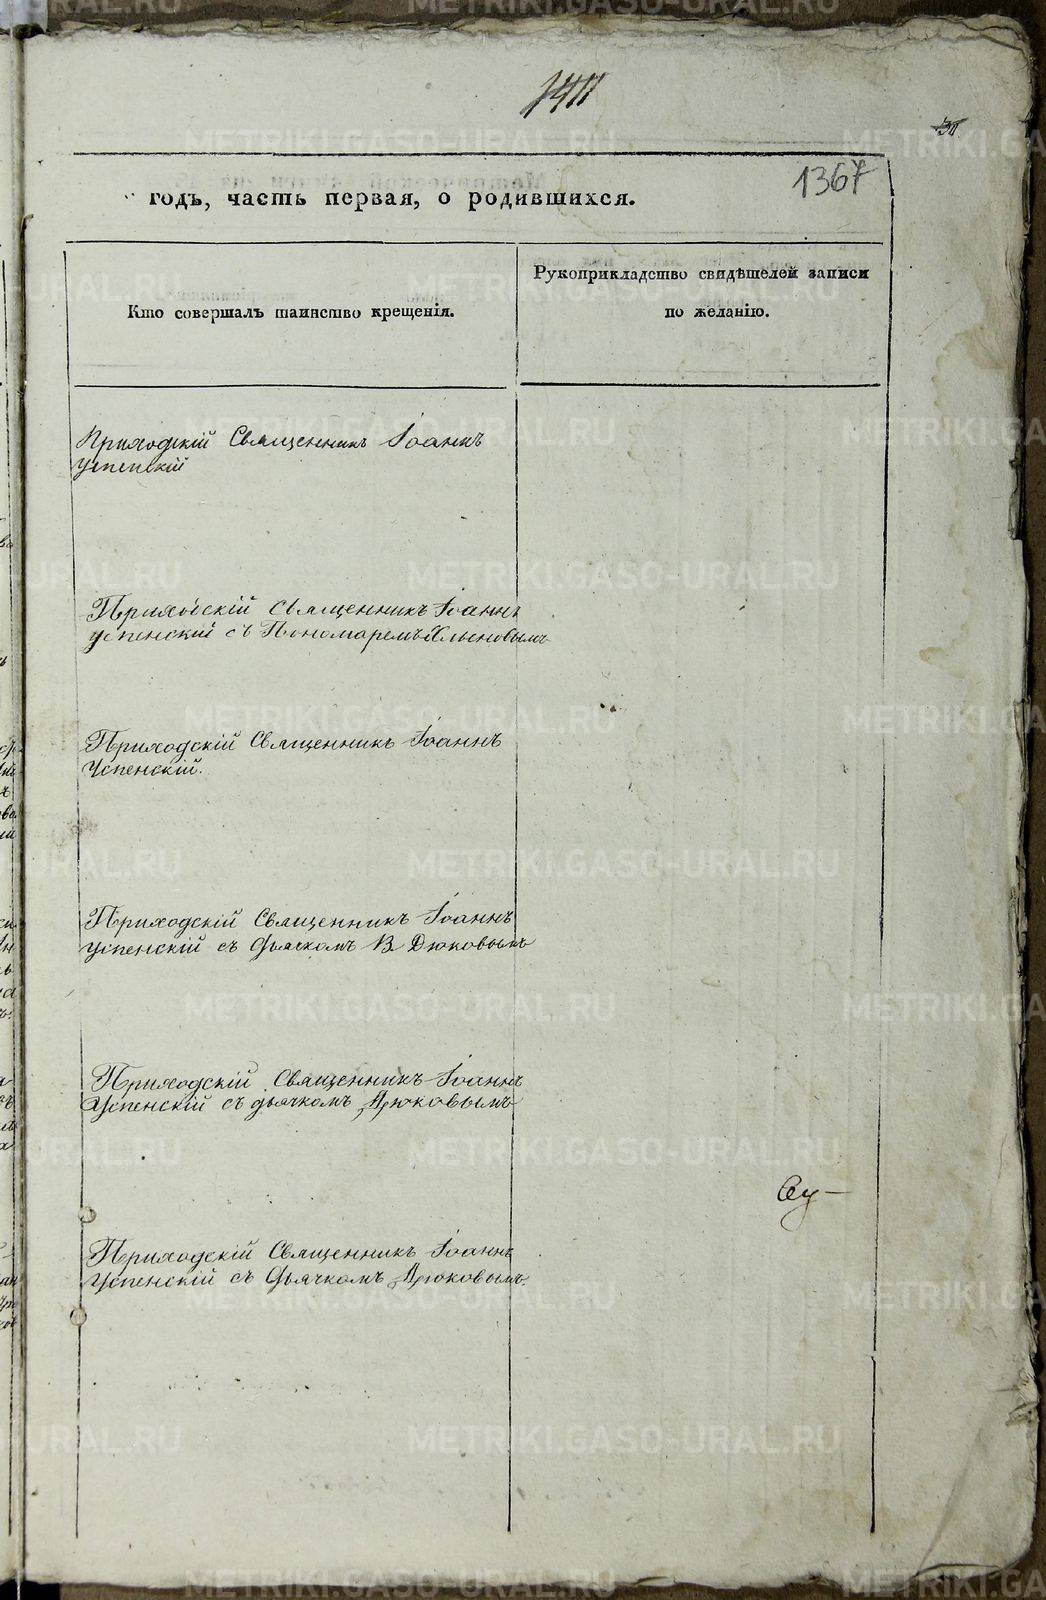 1367
годъ, часть первая, о родившихся.
Кто совершалъ таинство крещенія.
Рукоприкладство свидѣтелей записи
по желанію.
Приходскій Священникъ Іоаннъ
Успенскій
Приходскій Священникъ Іоаннъ
Успенскій съ Пономаремъ Хлыновымъ
Приходскій Священникъ Іоаннъ
Успенскій.
Приходскій Священникъ Іоаннъ
Успенскій съ Дьячкомъ В Дюковымъ
Приходскій Священникъ Іоаннъ
Успенскій съ дьячкомъ Дюковымъ
Приходскій Священникъ Іоаннъ
Успенскій съ Дьячкомъ Дюковымъ.
METRIKI.GASO-URAL.RU